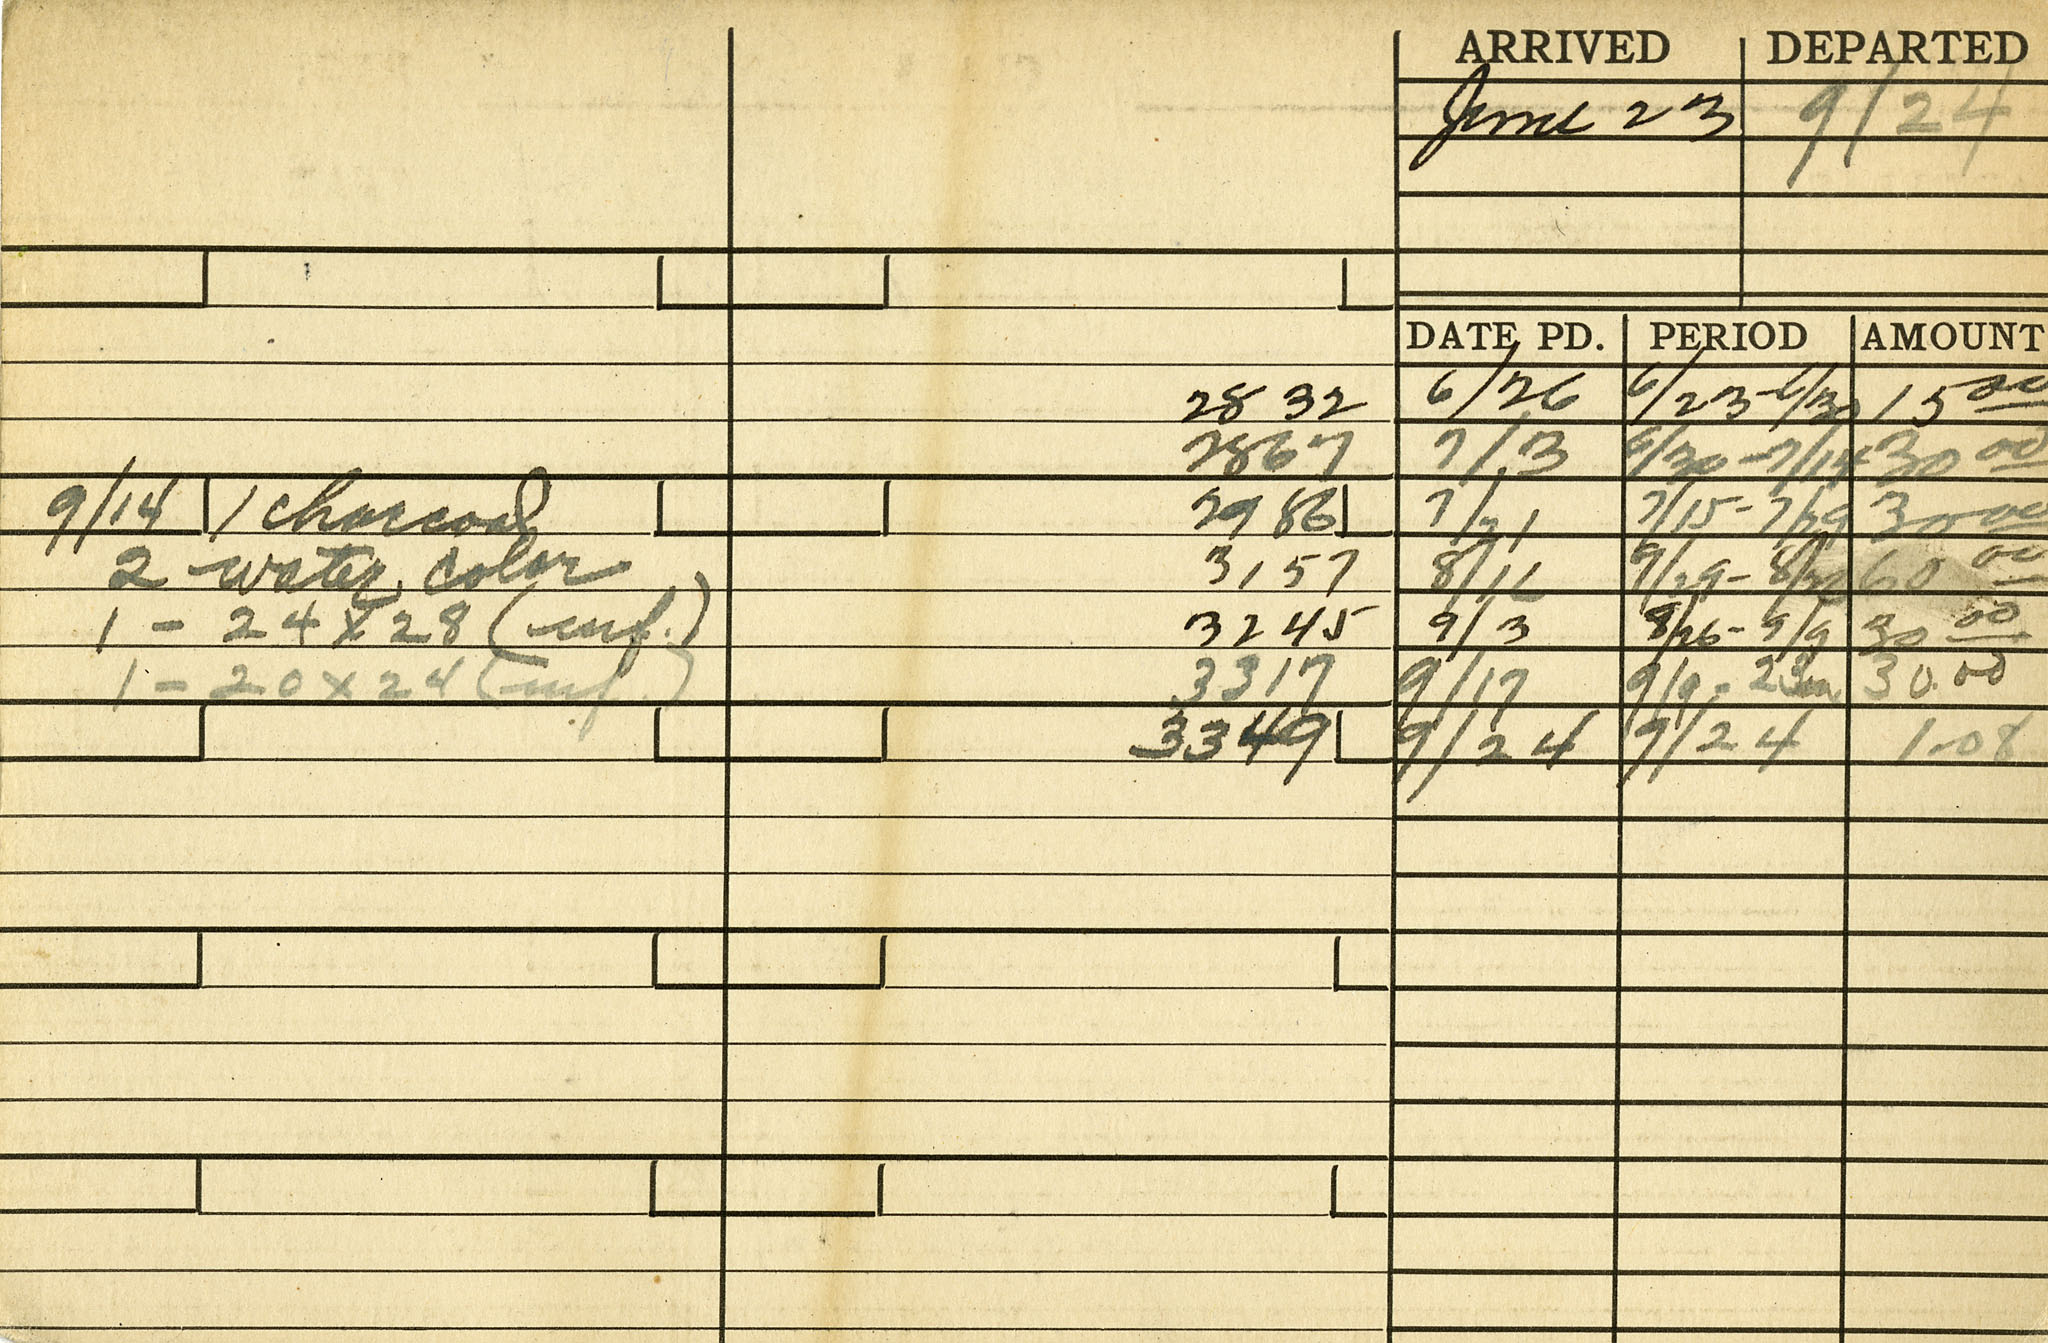 ARRIVED DEPARTED
June 23 9/24
DATE PD. PERIOD AMOUNT
2832 6/26 6/23-6/30 15 00
2867 7/3 6/30-7/14 30 00
9/14 1 charcoal 2986 7/21 7/15-7/29 30 00
2 water color 3157 8/16 60 00
1 - 24 x 28 (unf.) 3245 9/3 8/26-9/9 30 00
1 - 20 x 24 (unf.) 3317 9/17 9/9-23 30.00
3349 9/24 9/24 1.08